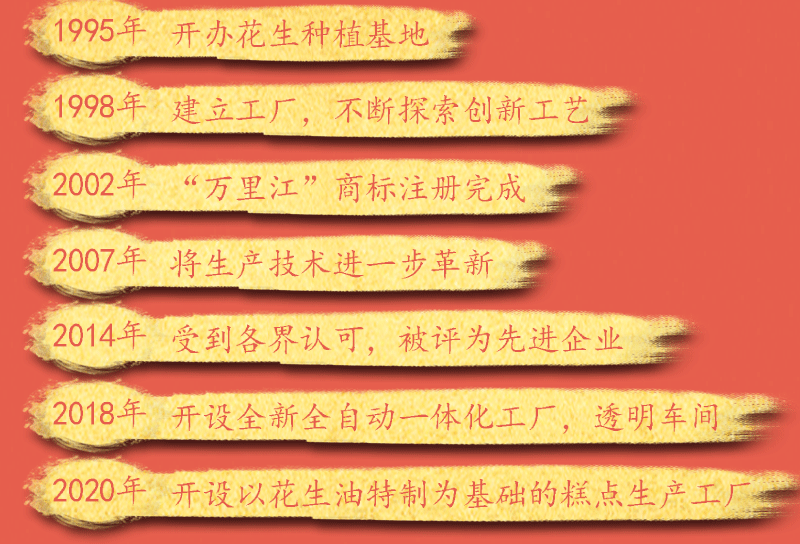 1995年 开办花生种植基地
1998年 建立工厂，不断探索创新工艺
2002年 “万里江”商标注册完成
2007年 将生产技术进一步革新
2014年 受到各界认可，被评为先进企业
2018年 开设全新全自动一体化工厂，透明车间
2020年 开设以花生油特制为基础的糕点生产工厂